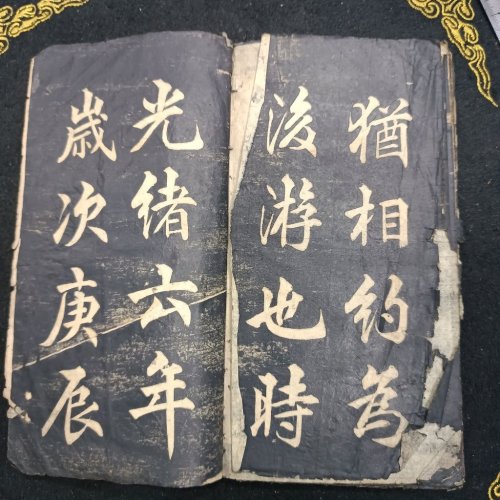 猶相約為
後游也時
光緒六年
歲次庚辰